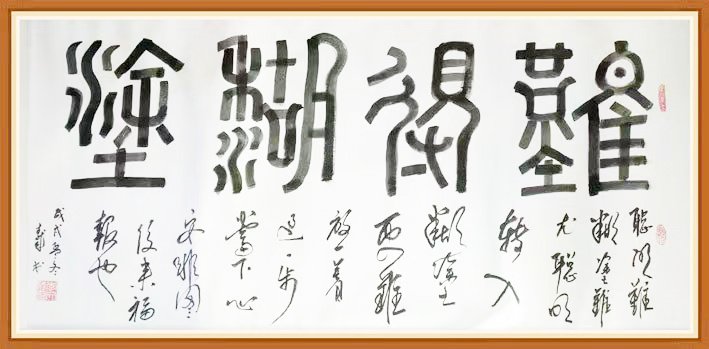 難得糊塗
聰明難
糊塗難
尤聰明
轉入
糊塗
更難
放一着
退一步
當下心
安非圖
後来福
報也
戊戌
書